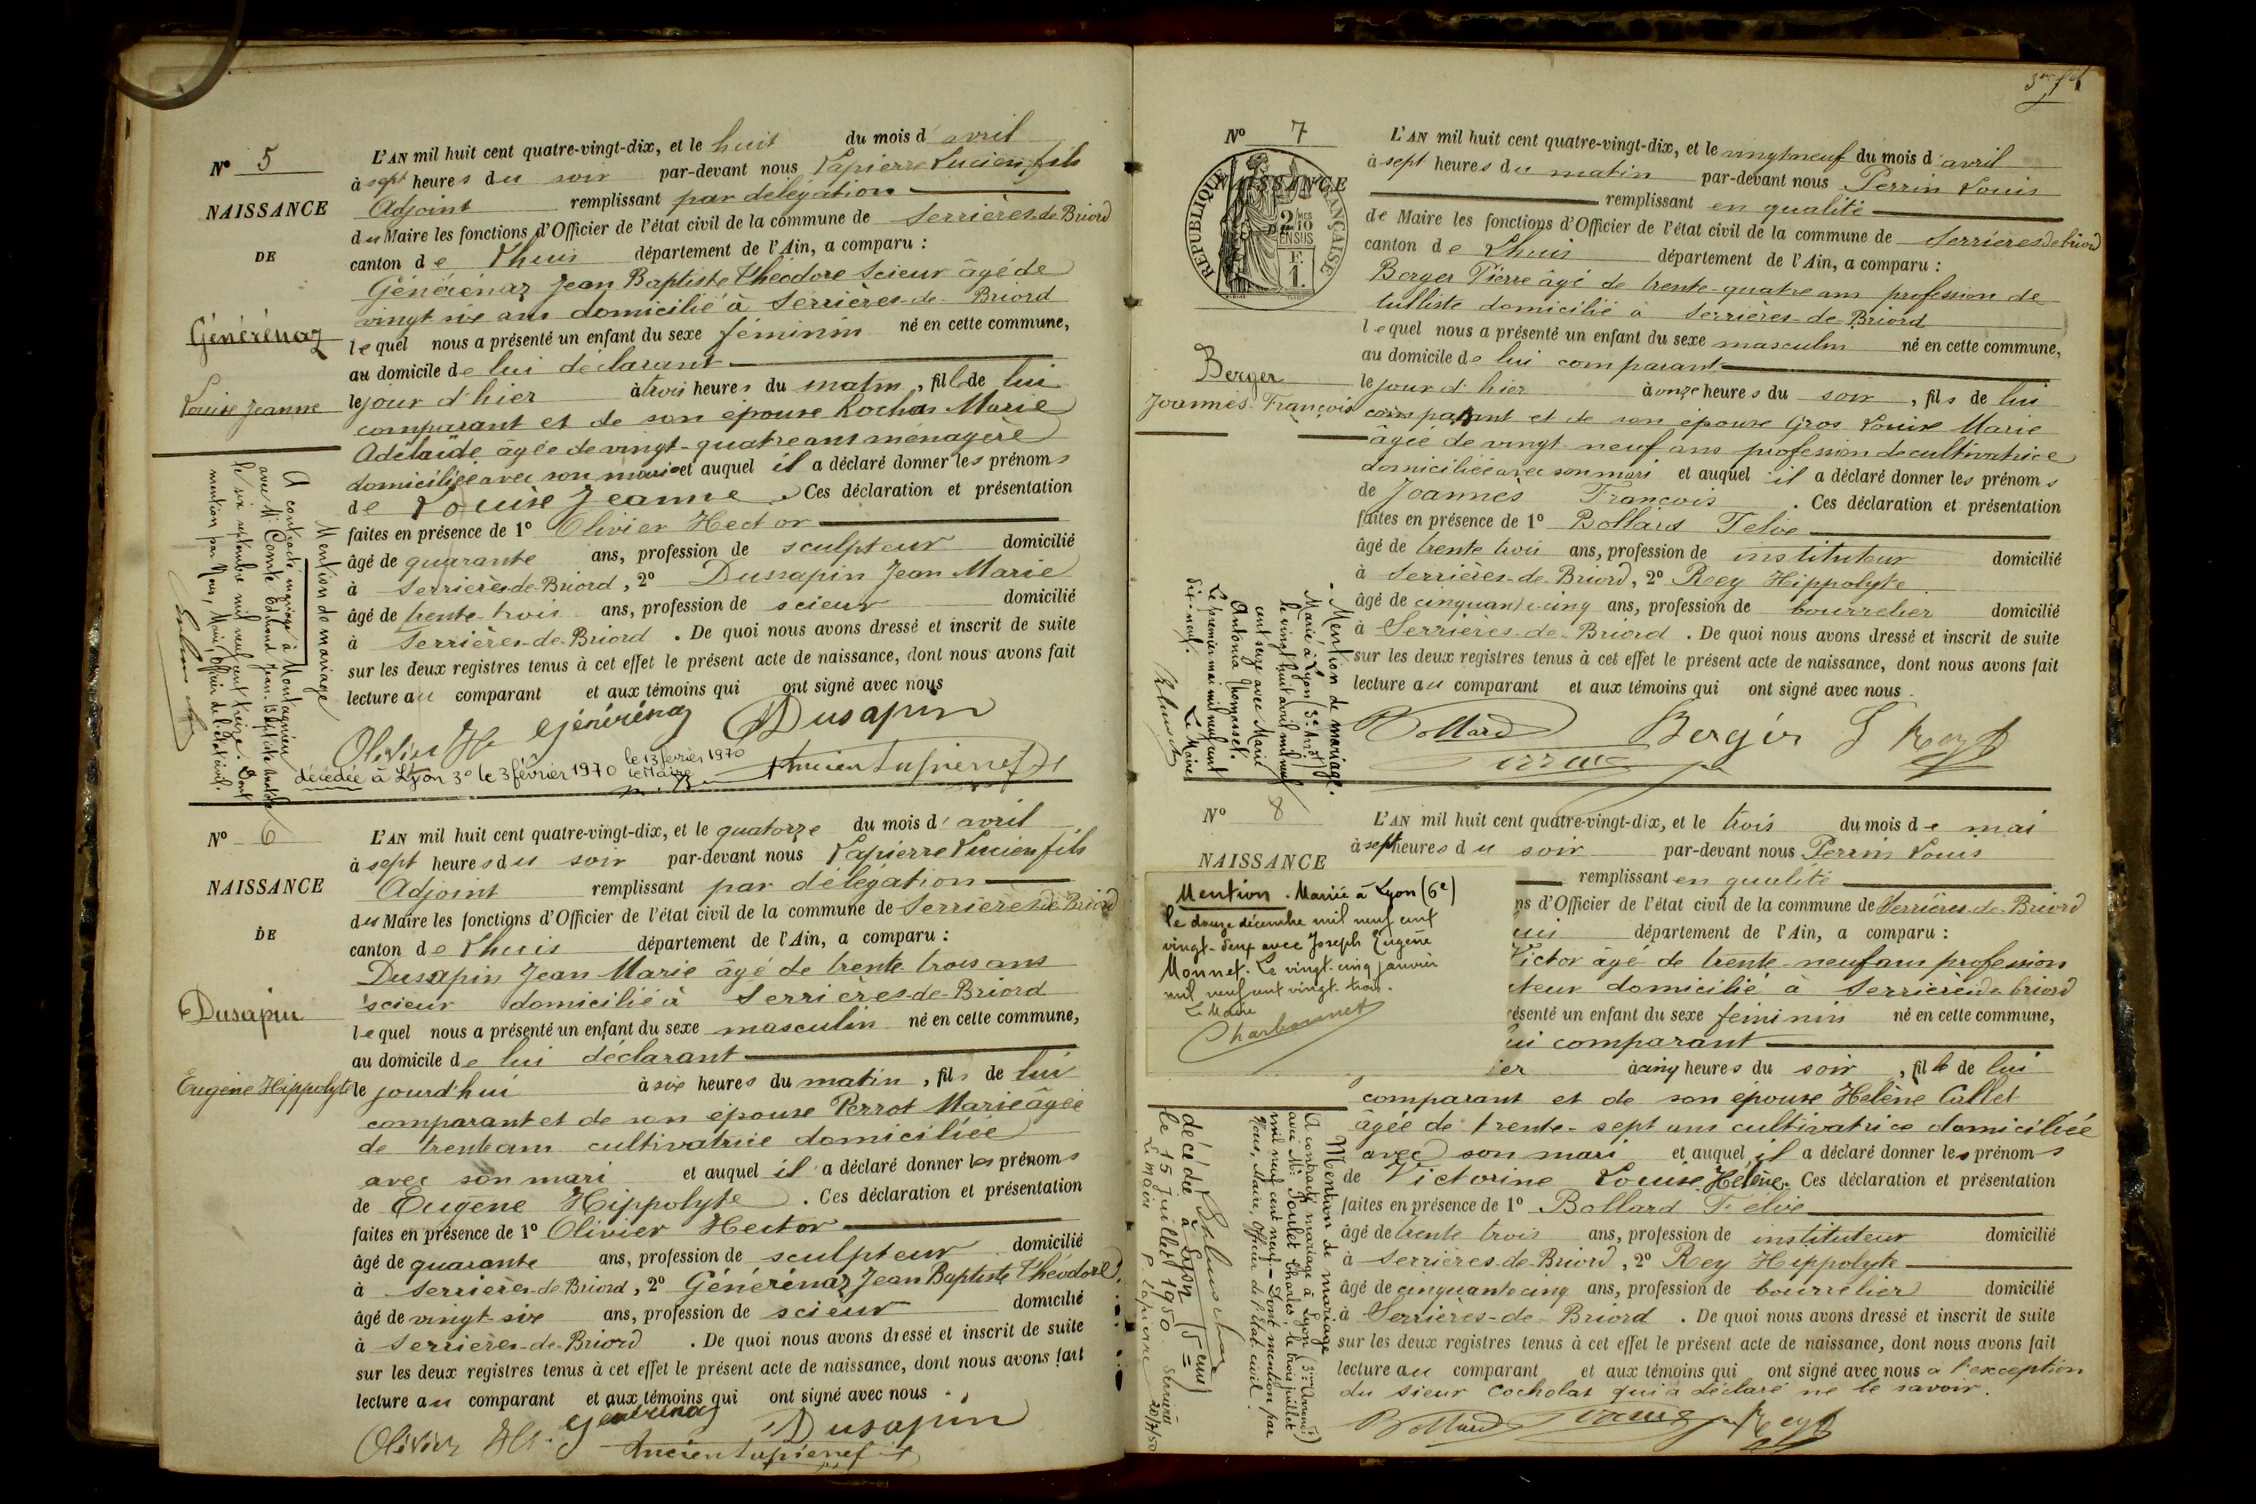 N° 5
NAISSANCE
DE
Générénaz
Louise Jeanne
L'AN mil huit cent quatre-vingt-dix, et le huit du mois d'avril
à sept heures du soir par-devant nous Lapierre Lucien fils
Adjoint remplissant par délégation
du Maire les fonctions d'Officier de l'état civil de la commune de Serrières-de-Briord
canton de Lhuis département de l'Ain, a comparu :
Générénaz Jean Baptiste Théodore scieur âgé de
vingt six ans domicilié à Serrières-de-Briord
lequel nous a présenté un enfant du sexe féminin né en cette commune,
au domicile de lui déclarant
le jour d'hier à trois heures du matin, fille de lui
comparant et de son épouse Rochas Marie
Adélaïde âgée de vingt-quatre ans ménagère
domiciliée avec son mari et auquel il a déclaré donner les prénoms
de Louise Jeanne. Ces déclaration et présentation
faites en présence de 1° Olivier Hector
âgé de quarante ans, profession de sculpteur domicilié
à Serrières-de-Briord, 2° Dussapin Jean Marie
âgé de trente-trois ans, profession de scieur domicilié
à Serrières-de-Briord. De quoi nous avons dressé et inscrit de suite
sur les deux registres tenus à cet effet le présent acte de naissance, dont nous avons fait
lecture au comparant et aux témoins qui ont signé avec nous
Olivier H. Générénaz Dusapin
Mention de mariage
A contracté mariage à Montagnieu
avec Mr Comte Edmond Jean-Baptiste
le six septembre mil neuf cent treize. Dont
mention par Nous, Maire, Officier de l'état civil.
décédée à Lyon 3e le 3 février 1970
le 13 février 1970
le Maire
N° 6
NAISSANCE
DE
Dusapin
Eugène Hippolyte
L'AN mil huit cent quatre-vingt-dix, et le quatorze du mois d'avril
à sept heures du soir par-devant nous Lapierre Lucien fils
Adjoint remplissant par délégation
du Maire les fonctions d'Officier de l'état civil de la commune de Serrières-de-Briord
canton de Lhuis département de l'Ain, a comparu :
Dusapin Jean Marie âgé de trente trois ans
scieur domicilié à Serrières-de-Briord
lequel nous a présenté un enfant du sexe masculin né en cette commune,
au domicile de lui déclarant
le jourd'hui à six heures du matin, fils de lui
comparant et de son épouse Perrot Marie âgée
de trente ans cultivatrice domiciliée
avec son mari et auquel il a déclaré donner les prénoms
de Eugène Hippolyte. Ces déclaration et présentation
faites en présence de 1° Olivier Hector
âgé de quarante ans, profession de sculpteur domicilié
à Serrières-de-Briord, 2° Générénaz Jean Baptiste Théodore
âgé de vingt-six ans, profession de scieur domicilié
à Serrières-de-Briord. De quoi nous avons dressé et inscrit de suite
sur les deux registres tenus à cet effet le présent acte de naissance, dont nous avons fait
lecture au comparant et aux témoins qui ont signé avec nous.
Olivier H. Générénaz Dusapin
N° 7
NAISSANCE
RÉPUBLIQUE FRANÇAISE
2/10 EN SUS
1 F.
Berger
Joannès François
L'AN mil huit cent quatre-vingt-dix, et le vingt neuf du mois d'avril
à sept heures du matin par-devant nous Perrin Louis
remplissant en qualité
de Maire les fonctions d'Officier de l'état civil de la commune de Serrières de Briord
canton de Lhuis département de l'Ain, a comparu :
Berger Pierre âgé de trente-quatre ans profession de
tulliste domicilié à Serrières-de-Briord
lequel nous a présenté un enfant du sexe masculin né en cette commune,
au domicile de lui comparant
le jour d'hier à onze heures du soir, fils de lui
comparant et de son épouse Gros Louise Marie
âgée de vingt-neuf ans profession de cultivatrice
domiciliée avec son mari et auquel il a déclaré donner les prénoms
de Joannès François. Ces déclaration et présentation
faites en présence de 1° Bollard Félix
âgé de trente trois ans, profession de instituteur domicilié
à Serrières-de-Briord, 2° Rey Hippolyte
âgé de cinquante-cinq ans, profession de bourrelier domicilié
à Serrières-de-Briord. De quoi nous avons dressé et inscrit de suite
sur les deux registres tenus à cet effet le présent acte de naissance, dont nous avons fait
lecture au comparant et aux témoins qui ont signé avec nous.
Bollard Berger Rey
Perrin
Mention de mariage.
Marié à Lyon (3e Arrdt)
le vingt huit avril mil neuf
cent seize avec Marie
Antonia Thomasset.
Le premier mai mil neuf cent
dix-neuf. Le Maire
N° 8
NAISSANCE
Mention. Mariée à Lyon (6e)
le douze décembre mil neuf cent
vingt-deux avec Joseph Eugène
Monnet. Le vingt-cinq janvier
mil neuf cent vingt-trois.
Le Maire
Charbonnet
L'AN mil huit cent quatre-vingt-dix, et le trois du mois de mai
à sept heures du soir par-devant nous Perrin Louis
remplissant en qualité
ns d'Officier de l'état civil de la commune de Serrières-de-Briord
uis département de l'Ain, a comparu :
Victor âgé de trente-neuf ans profession
teur domicilié à Serrières de briord
résenté un enfant du sexe féminin né en cette commune,
ui comparant
ier à cinq heures du soir, fille de lui
comparant et de son épouse Hélène Callet
âgée de trente-sept ans cultivatrice domiciliée
avec son mari et auquel il a déclaré donner les prénoms
de Victorine Louise Hélène. Ces déclaration et présentation
faites en présence de 1° Bollard Félix
âgé de trente trois ans, profession de instituteur domicilié
à Serrières-de-Briord, 2° Rey Hippolyte
âgé de cinquante cinq ans, profession de bourrelier domicilié
à Serrières-de-Briord. De quoi nous avons dressé et inscrit de suite
sur les deux registres tenus à cet effet le présent acte de naissance, dont nous avons fait
lecture au comparant et aux témoins qui ont signé avec nous à l'exception
du sieur Cocholat qui a déclaré ne le savoir.
Bollard Perrin Rey
Mention de mariage
A contracté mariage à Lyon (3me Arrondt)
avec Mr Poulet Charles, le trois juillet
mil neuf cent neuf. - Dont mention par
Nous, Maire, Officier de l'état civil.
décédée à Lyon (5eme)
le 15 juillet 1950
Le maire P. Lapierre
20/7/50